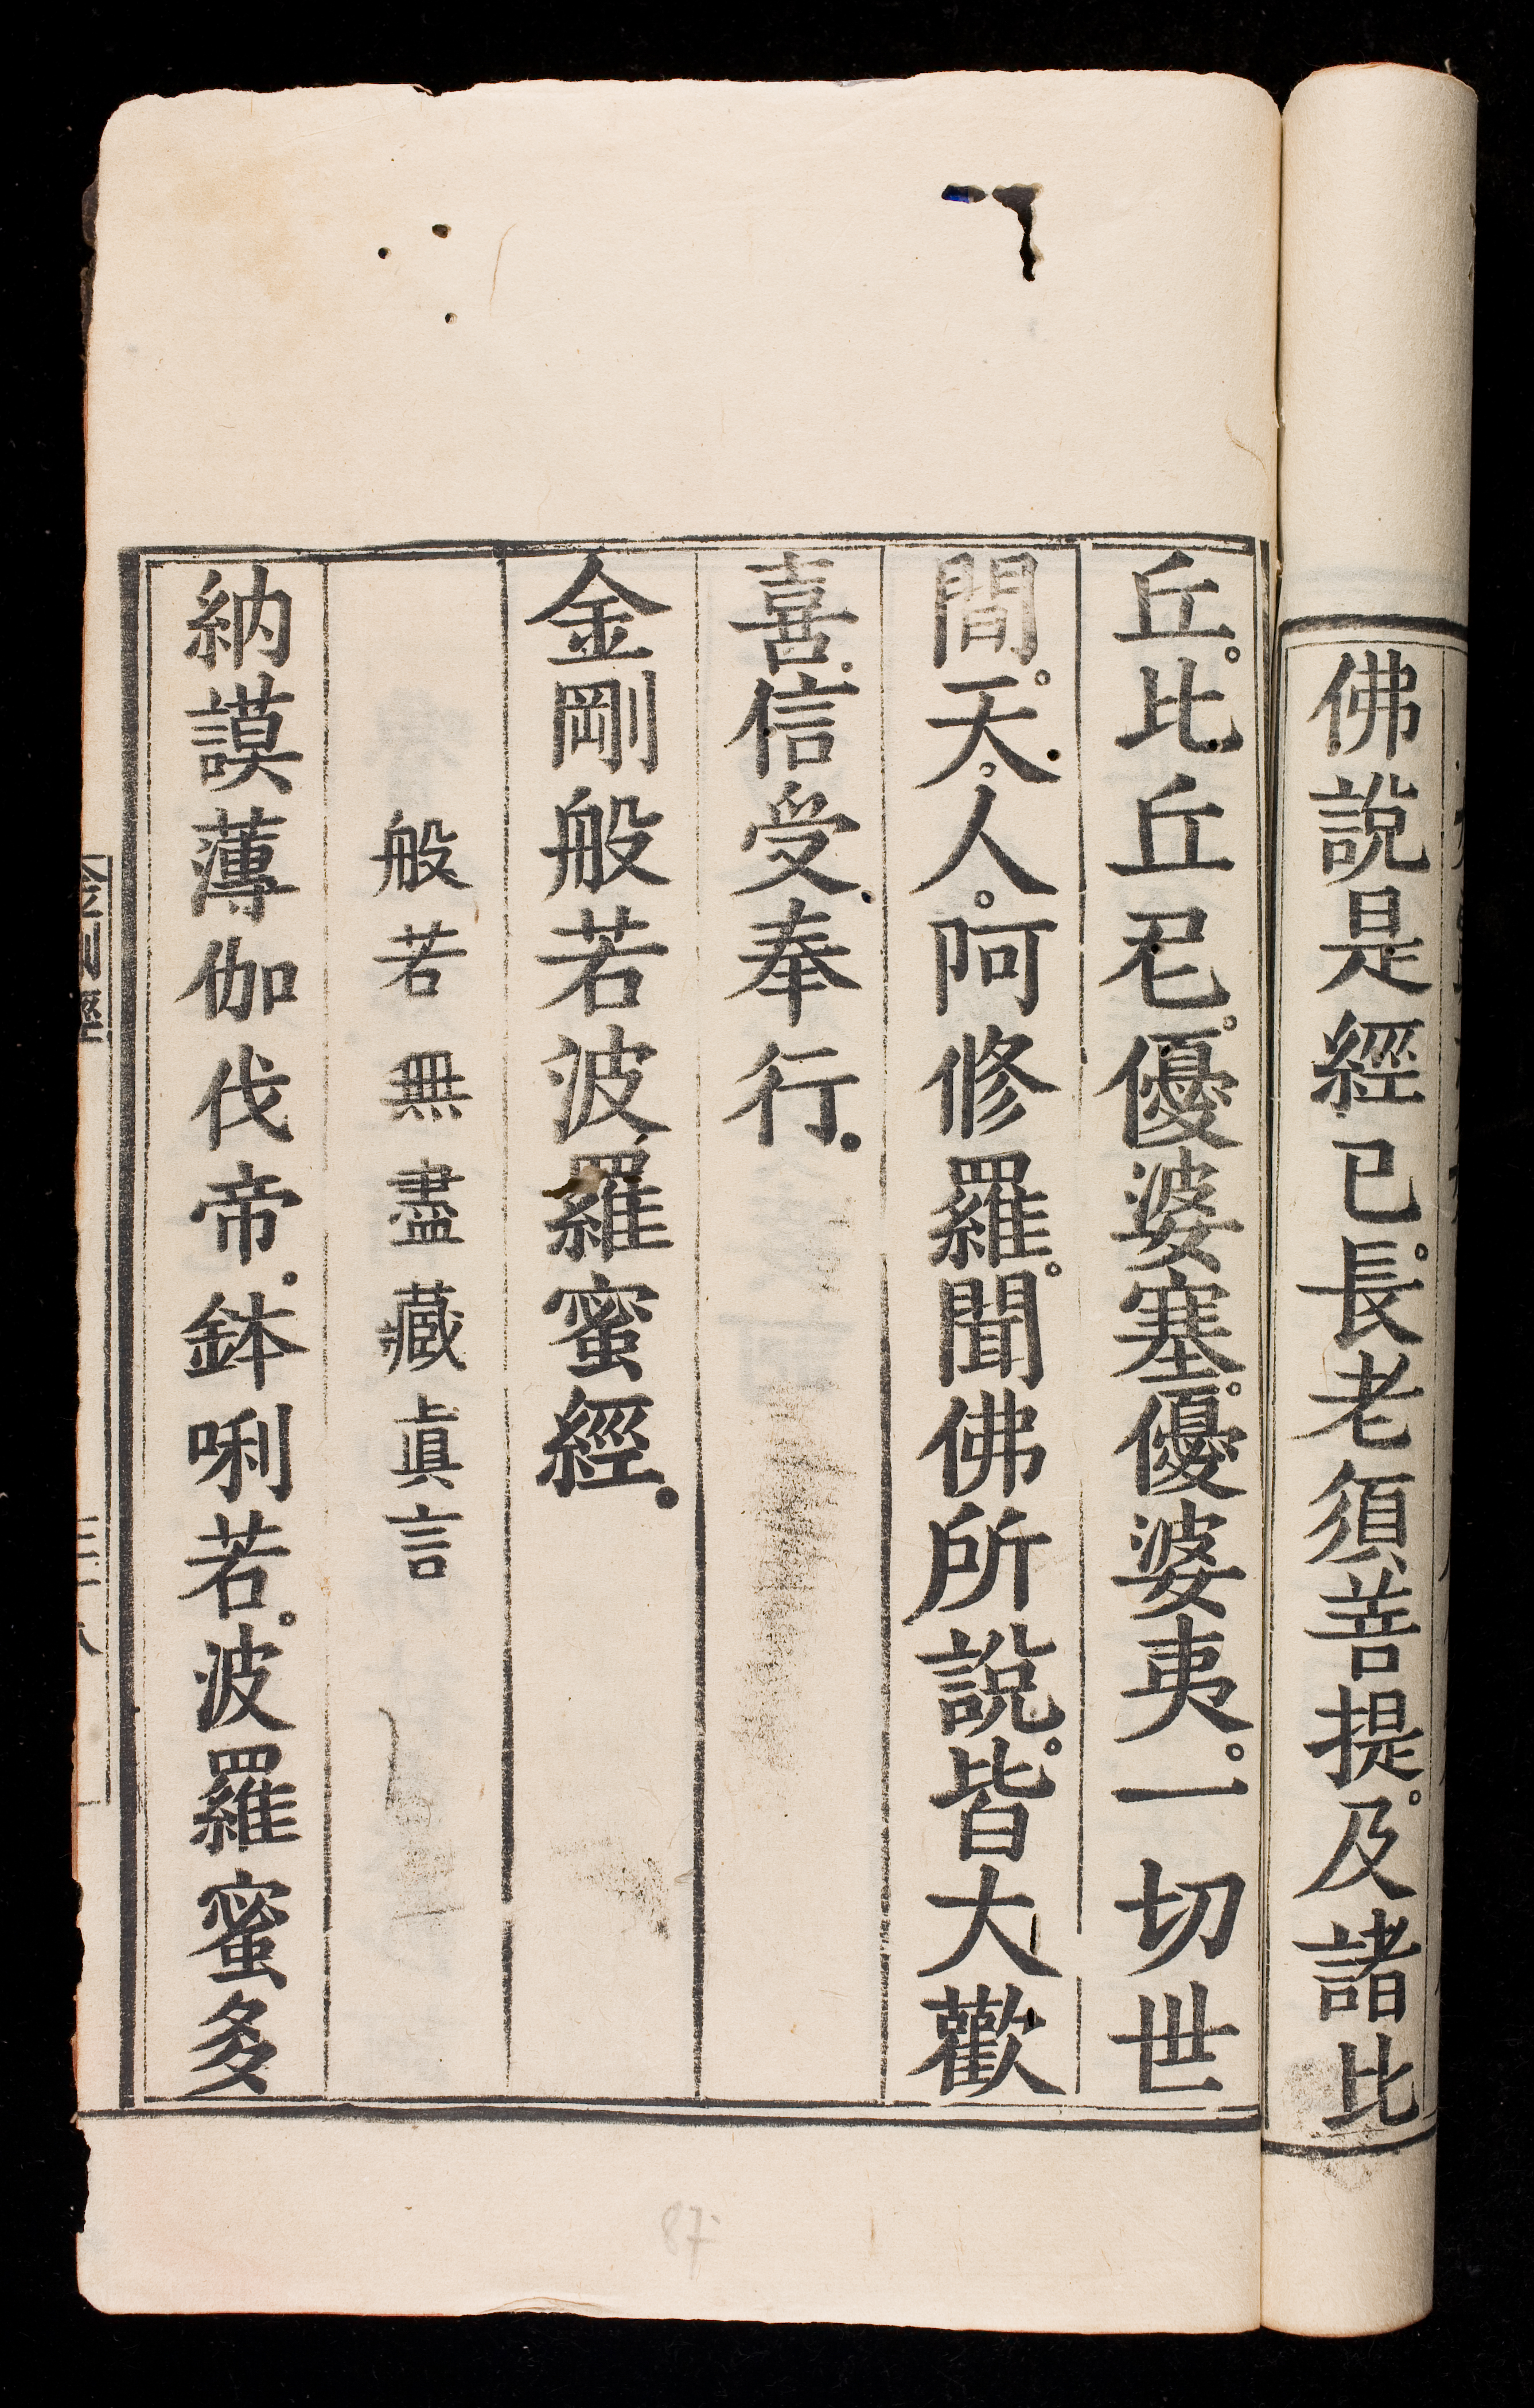 佛說是經已。長老須菩提。及諸比
丘。比丘尼。優婆塞。優婆夷。一切世
間。天。人。阿修羅。聞佛所說。皆大歡
喜。信受奉行。
金剛般若波羅蜜經。
般若無盡藏真言
納謨薄伽伐帝。鉢唎若。波羅蜜多
87